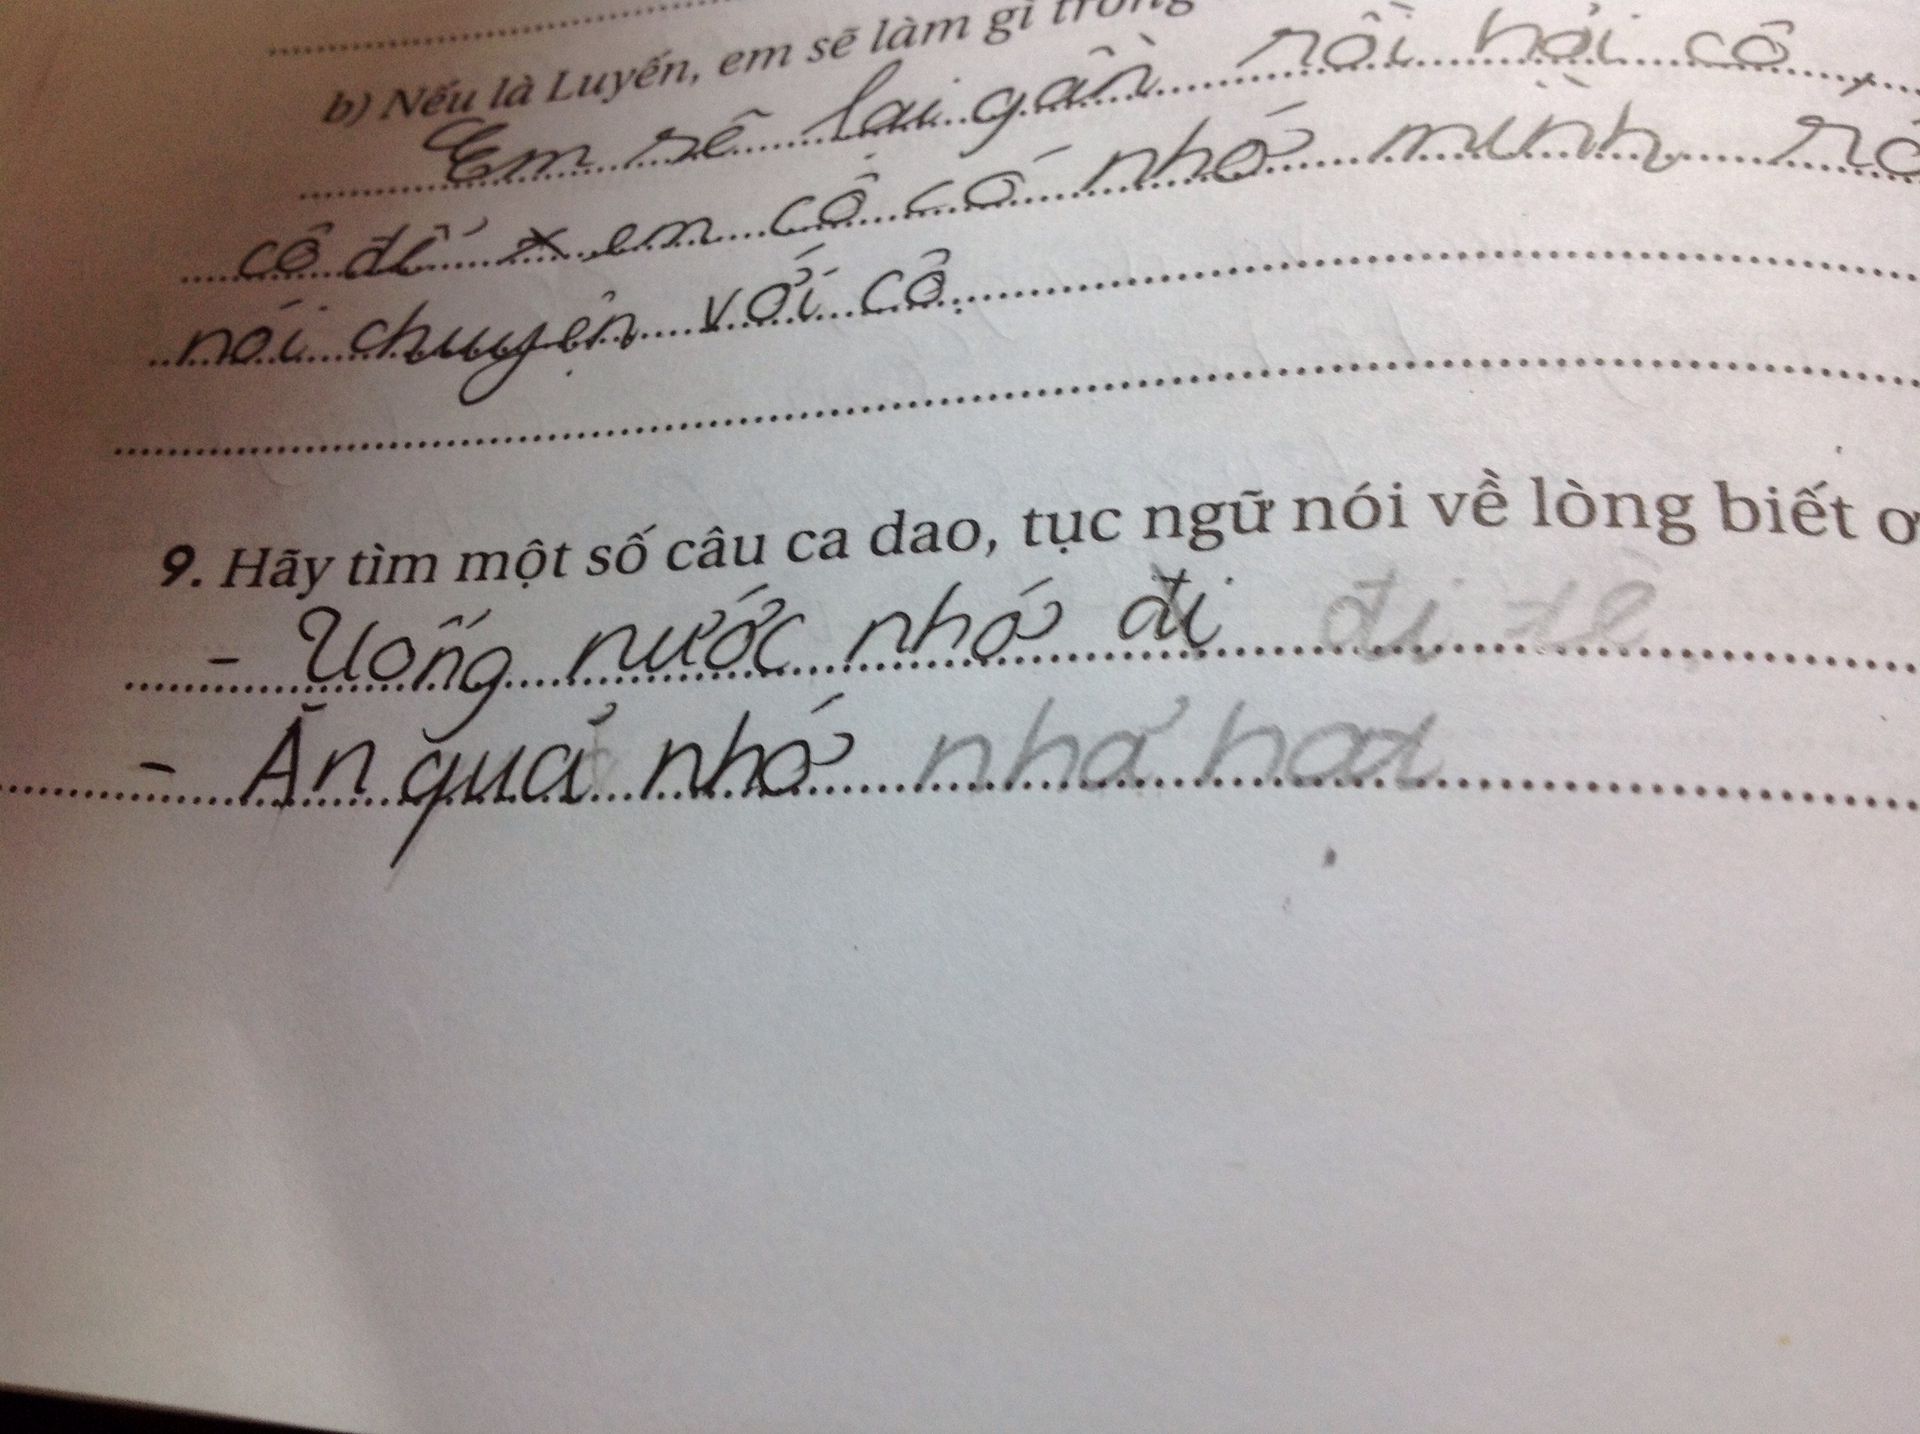 b) Nếu là Luyến, em sẽ làm gì trong
Em sẽ lại gần rồi hỏi cô,
cô để em cô có nhớ mình
nói chuyện với cô.
9. Hãy tìm một số câu ca dao, tục ngữ nói về lòng biết ơ
- Uống nước nhớ đi đi
- Ăn quả nhớ nhả hạt